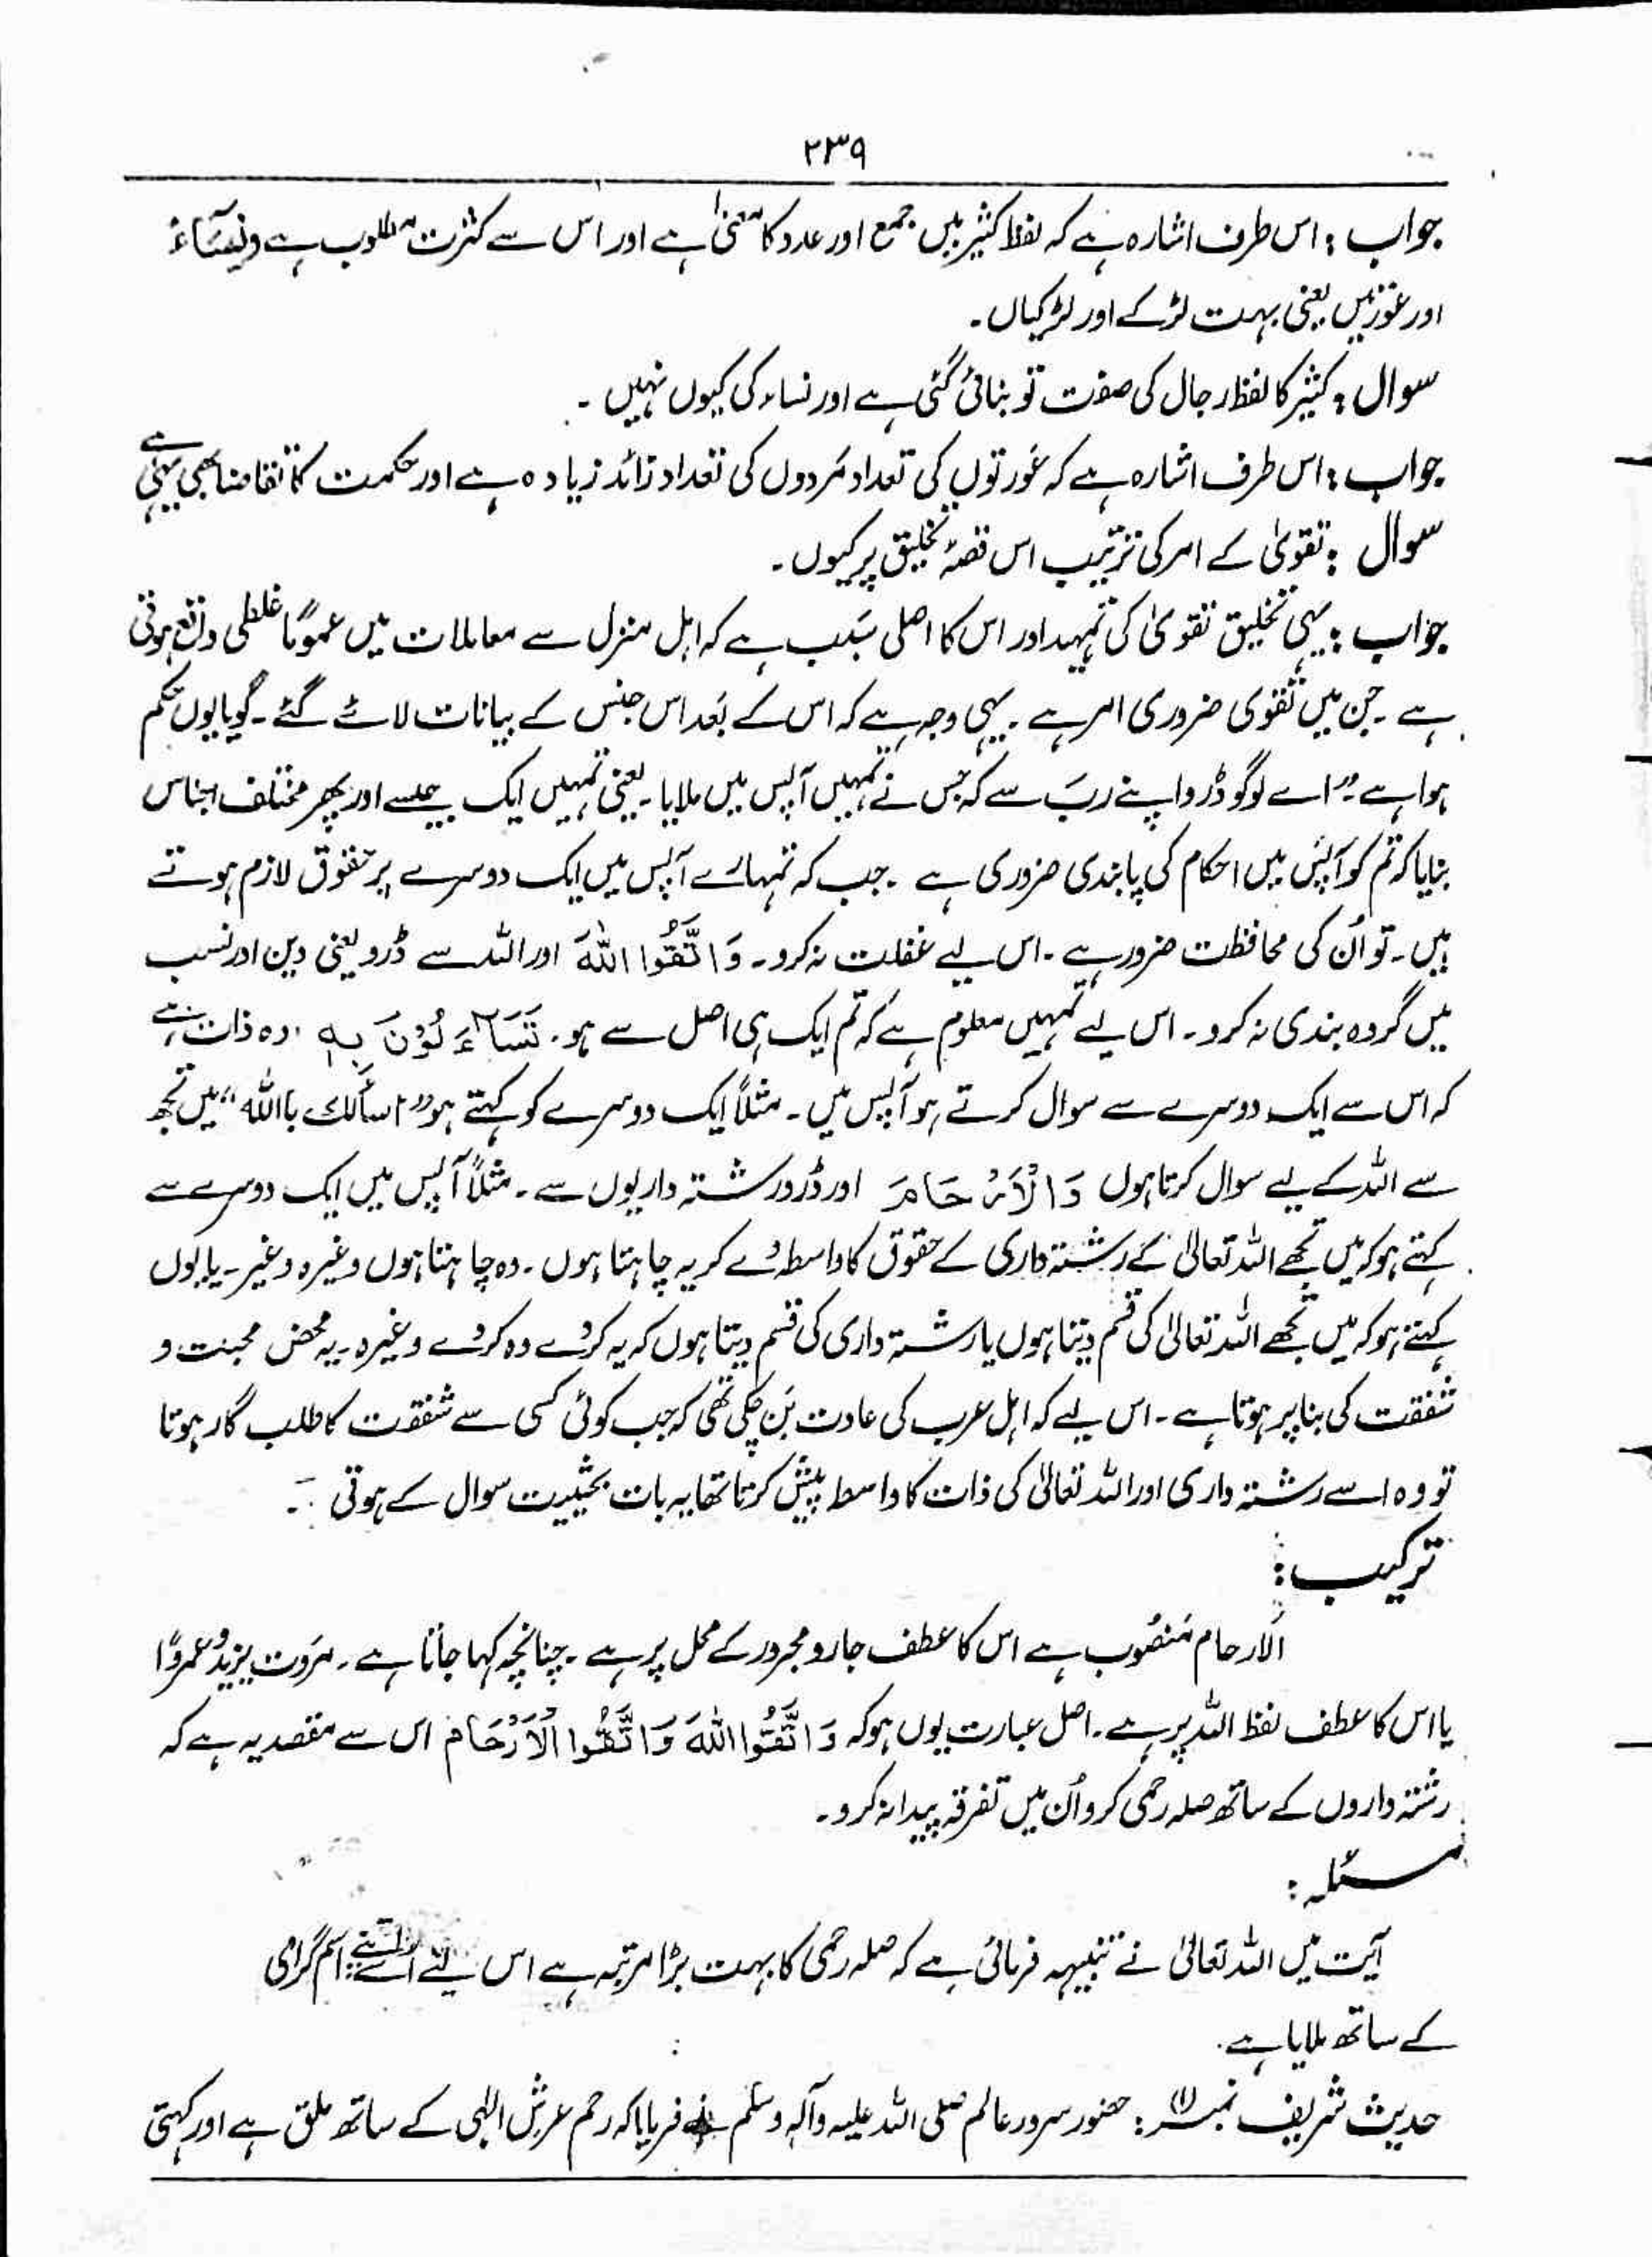 ۲۳۹
جواب : اس طرف اشارہ ہے کہ لفظ کثیر میں جمع اور عدد کا معنیٰ ہے اور اس سے کثرت مطلوب ہے وَنِسَآءً
اور عورتیں یعنی بہت لڑکے اور لڑکیاں۔
سوال : کثیر کا لفظ رجال کی صفت تو بنائی گئی ہے اور نساء کی کیوں نہیں ۔
جواب : اس طرف اشارہ ہے کہ عورتوں کی تعداد مَردوں کی تعداد زائد زیادہ ہے اور حکمت کا تقاضا بھی یہی ہے
سوال : تقویٰ کے امر کی ترتیب اس قصۂ تخلیق پر کیوں۔
جواب : یہی تخلیق تقویٰ کی تمہید اور اس کا اصلی سَبَب ہے کہ اہل منزل سے معاملات میں عمومًا غلطی واقع ہوتی
ہے ۔ جن میں تقوی ضروری امر ہے ۔ یہی وجہ ہے کہ اس کے بَعد اس جنس کے بیانات لائے گئے ۔ گویا یوں حکم
ہوا ہے :" اے لوگو ڈرو اپنے ربّ سے کہ جس نے تمہیں آپس میں ملایا ۔ یعنی تمہیں ایک جیسے اور پھر مختلف اجناس
بنایا کہ تم کو آپس میں احکام کی پابندی ضروری ہے ۔ جب کہ تمہارے آپس میں ایک دوسرے پر حقوق لازم ہوتے
ہیں ۔ تو اُن کی محافظت ضرور ہے ۔ اس لیے غفلت نہ کرو ۔ وَاتَّقُوا اللّٰهَ اور اللہ سے ڈرو یعنی دین اور نسب
میں گروہ بندی نہ کرو ۔ اس لیے تمہیں معلوم ہے کہ تم ایک ہی اصل سے ہو ۔ تَسَآءَلُوْنَ بِهٖ ، وہ ذات ہے
کہ اس سے ایک دوسرے سے سوال کرتے ہو آپس میں ۔ مثلاً ایک دوسرے کو کہتے ہو " اسألك باالله " میں تجھ
سے اللہ کے لیے سوال کرتا ہوں وَالْاَرْحَامَ اور ڈرو رشتہ داریوں سے ۔ مثلاً آپس میں ایک دوسرے سے
کہتے ہو کہ میں تجھے اللہ تعالیٰ کے رشتہ داری کے حقوق کا واسطہ دے کر یہ چاہتا ہوں ۔ وہ چاہتا ہوں وغیرہ وغیر ۔ یا یوں
کہتے ہو کہ میں تجھے اللہ تعالیٰ کی قسم دیتا ہوں یا رشتہ داری کی قسم دیتا ہوں کہ یہ کردے وہ کردے وغیرہ ۔ یہ محض محبت و
شفقت کی بنا پر ہوتا ہے ۔ اس لیے کہ اہل عرب کی عادت بَن چکی تھی کہ جب کوئی کسی سے شفقت کا طلب گار ہوتا
تو وہ اسے رشتہ داری اور اللہ تعالیٰ کی ذات کا واسطہ پیش کرتا تھا یہ بات بحیثیت سوال کے ہوتی ۔
ترکیب :
اَلارحام مَنصُوب ہے اس کا عطف جار و مجرور کے محل پر ہے ۔ چنانچہ کہا جاتا ہے ۔ مررت بزیدٍ عمروًا
یا اس کا عطف لفظ اللہ پر ہے ۔ اصل عبارت یوں ہو کہ وَاتَّقُوا اللهَ وَاتَّقُوا الْاَرْحَامَ اس سے مقصد یہ ہے کہ
رشتہ داروں کے ساتھ صلہ رحمی کرو اُن میں تفرقہ پیدا نہ کرو۔
مسئلہ :
آیت میں اللہ تعالیٰ نے تنبیہہ فرمائی ہے کہ صلہ رحمی کا بہت بڑا مرتبہ ہے اس لیے اسے اپنے اسم گرامی
کے ساتھ ملایا ہے۔
حدیث شریف نمبر (۱) : حضور سرور عالم صلی اللہ علیہ وآلہٖ وسلم نے فرمایا کہ رحم عرش الٰہی کے ساتھ معلق ہے اور کہتی